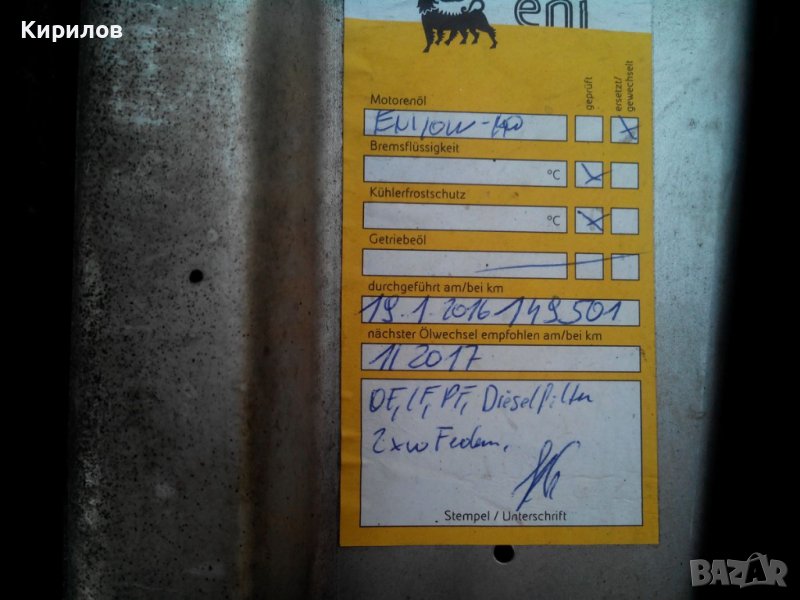 Кирилов
eni
geprüft
ersetzt/
gewechselt
Motorenöl
ENI 10W-40
Bremsflüssigkeit
°C
Kühlerfrostschutz
°C
Getriebeöl
durchgeführt am/bei km
19.1.2016 149501
nächster Ölwechsel empfohlen am/bei km
1/2017
OF, LF, PF, Dieselfilter
Stempel / Unterschrift
BAZAR